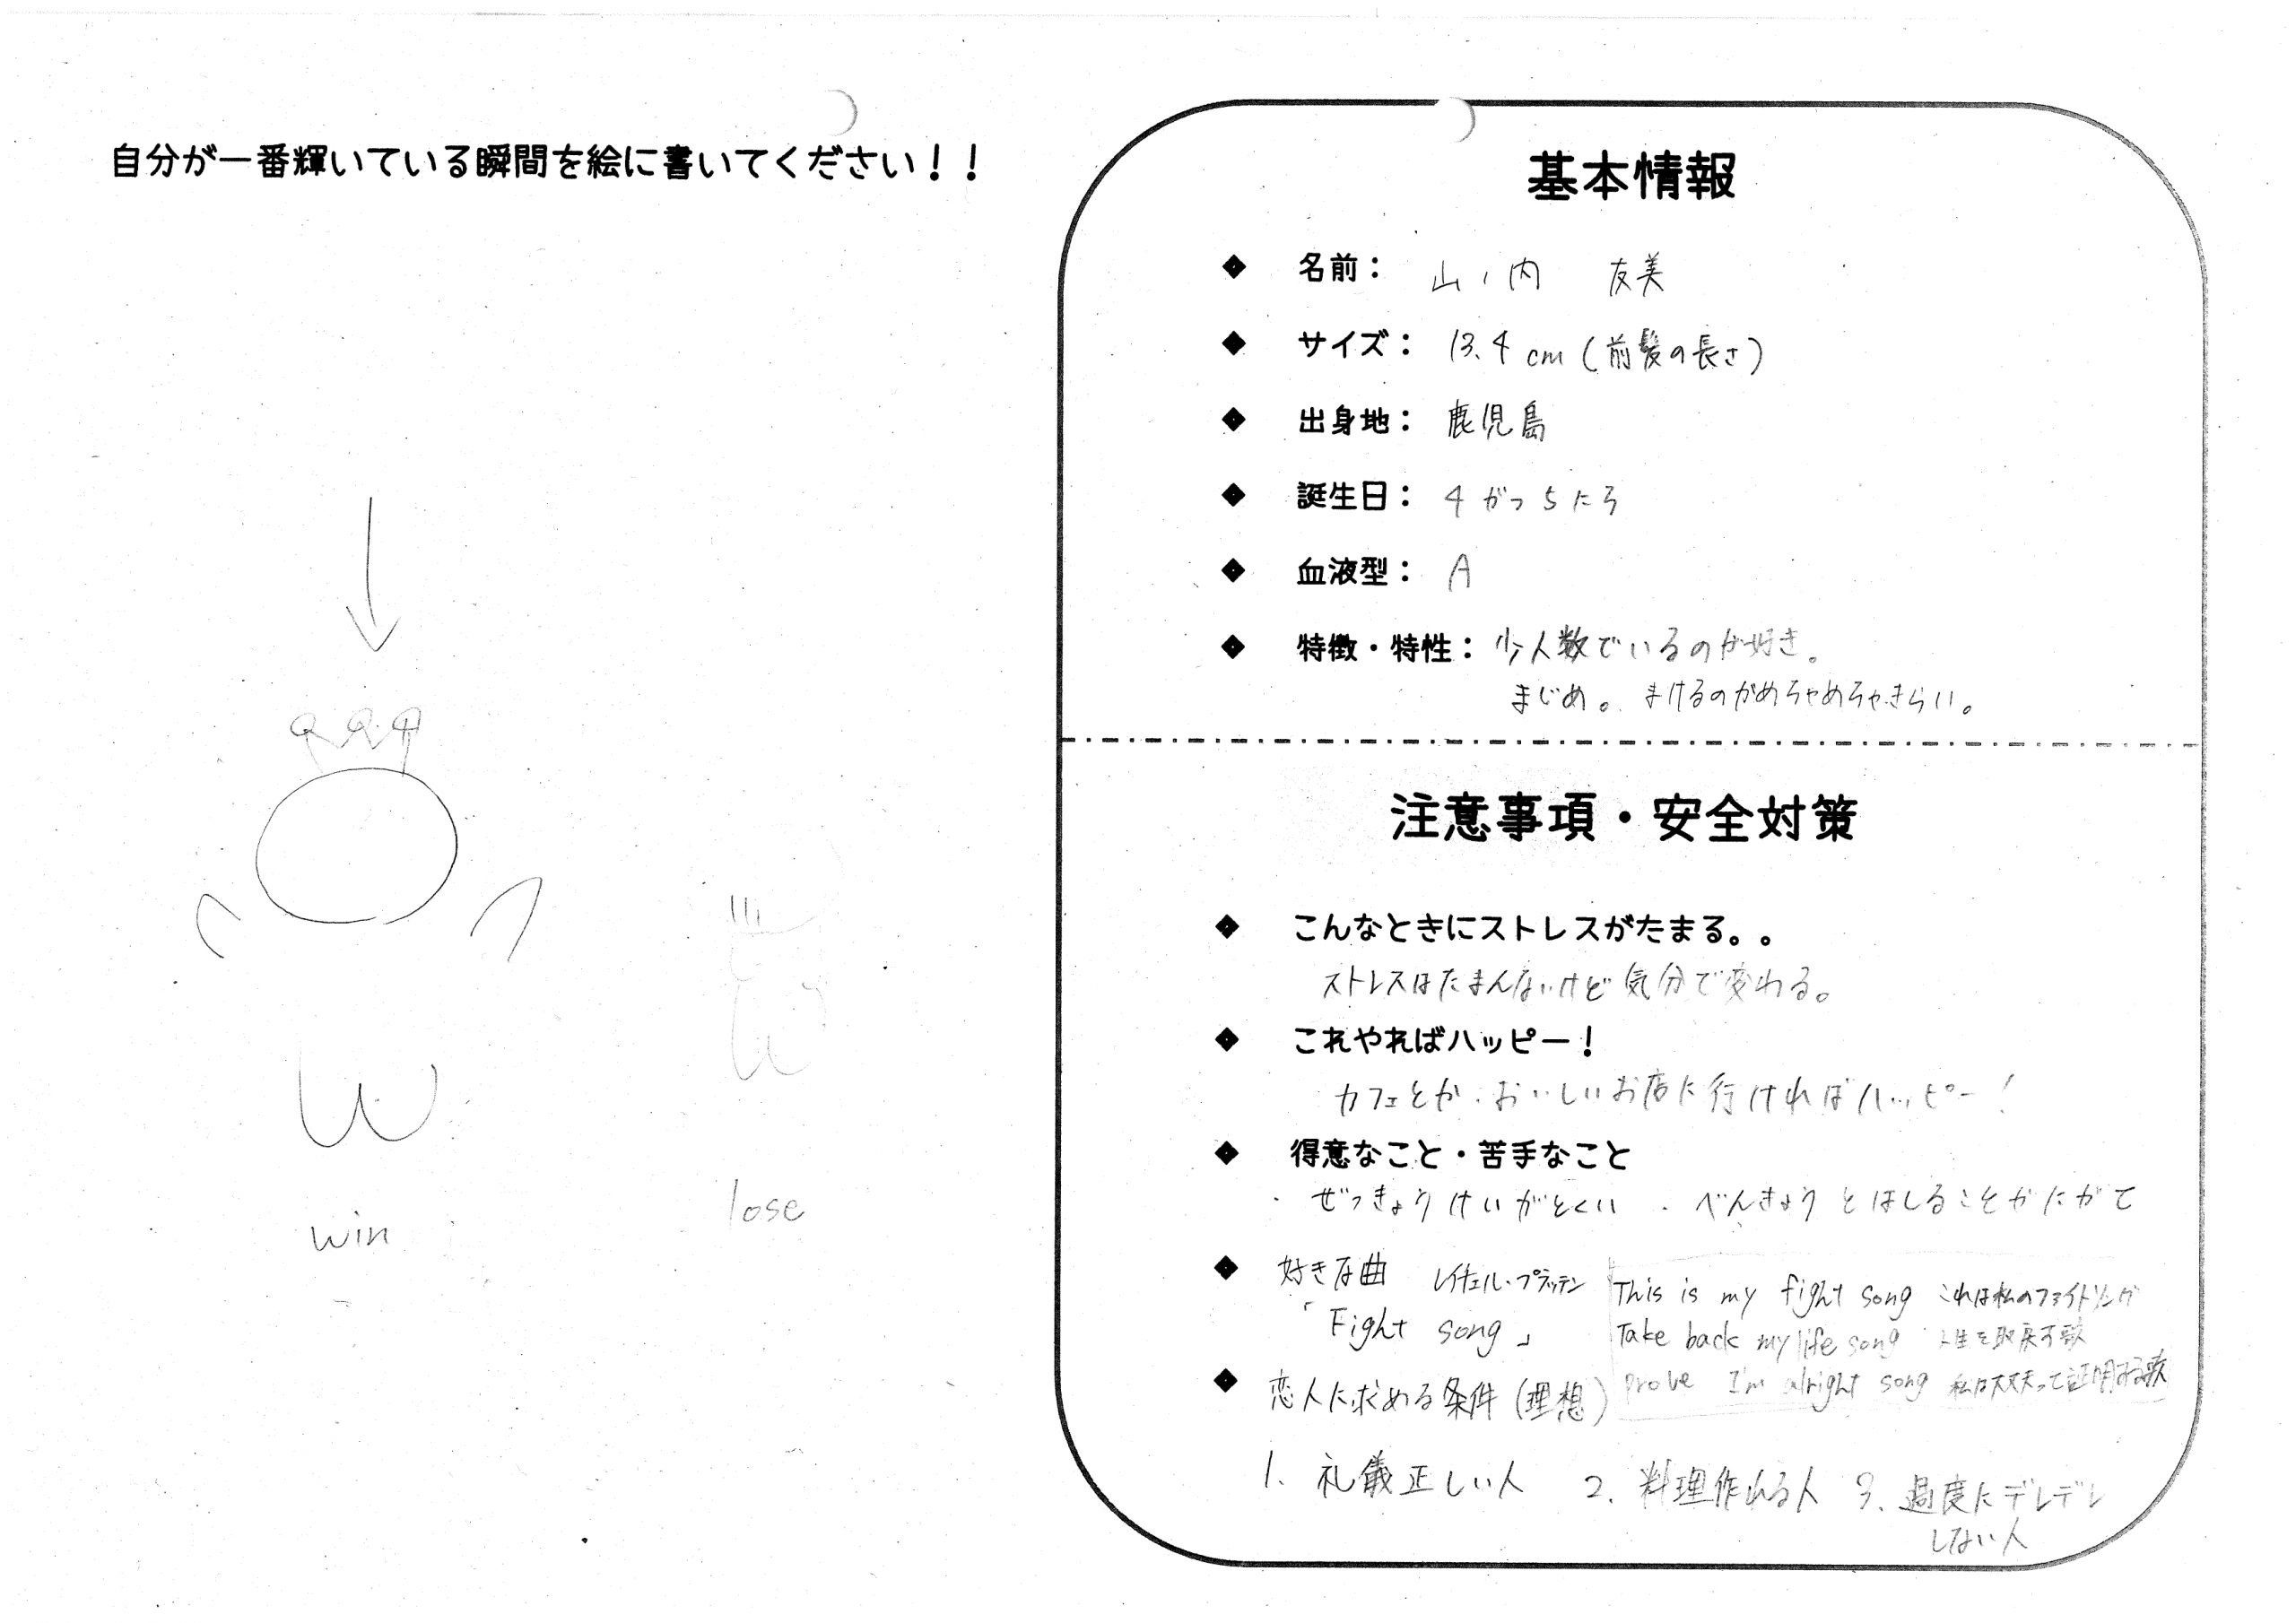 自分が一番輝いている瞬間を絵に書いてください！！
win
lose
基本情報
◆ 名前： 山ノ内 友美
◆ サイズ： 13.4 cm (前髪の長さ)
◆ 出身地： 鹿児島
◆ 誕生日： 4がつ5にち
◆ 血液型： A
◆ 特徴・特性： 少人数でいるのが好き。
まじめ。まけるのがめちゃめちゃきらい。
注意事項・安全対策
◆ こんなときにストレスがたまる。。
ストレスはたまんないけど気分で変わる。
◆ これやればハッピー！
カフェとか、おいしいお店に行ければハッピー！
◆ 得意なこと・苦手なこと
・ぜっきょうけいがとくい ・べんきょうとはしることがにがて
◆ 好きな曲 レイチェル・プラッテン
「Fight song」
This is my fight song これは私のファイトソング
Take back my life song 人生を取戻す歌
prove I'm alright song 私は大丈夫って証明する歌
◆ 恋人に求める条件 (理想)
1. 礼儀正しい人 2. 料理作れる人 3. 過度にデレデレ
しない人